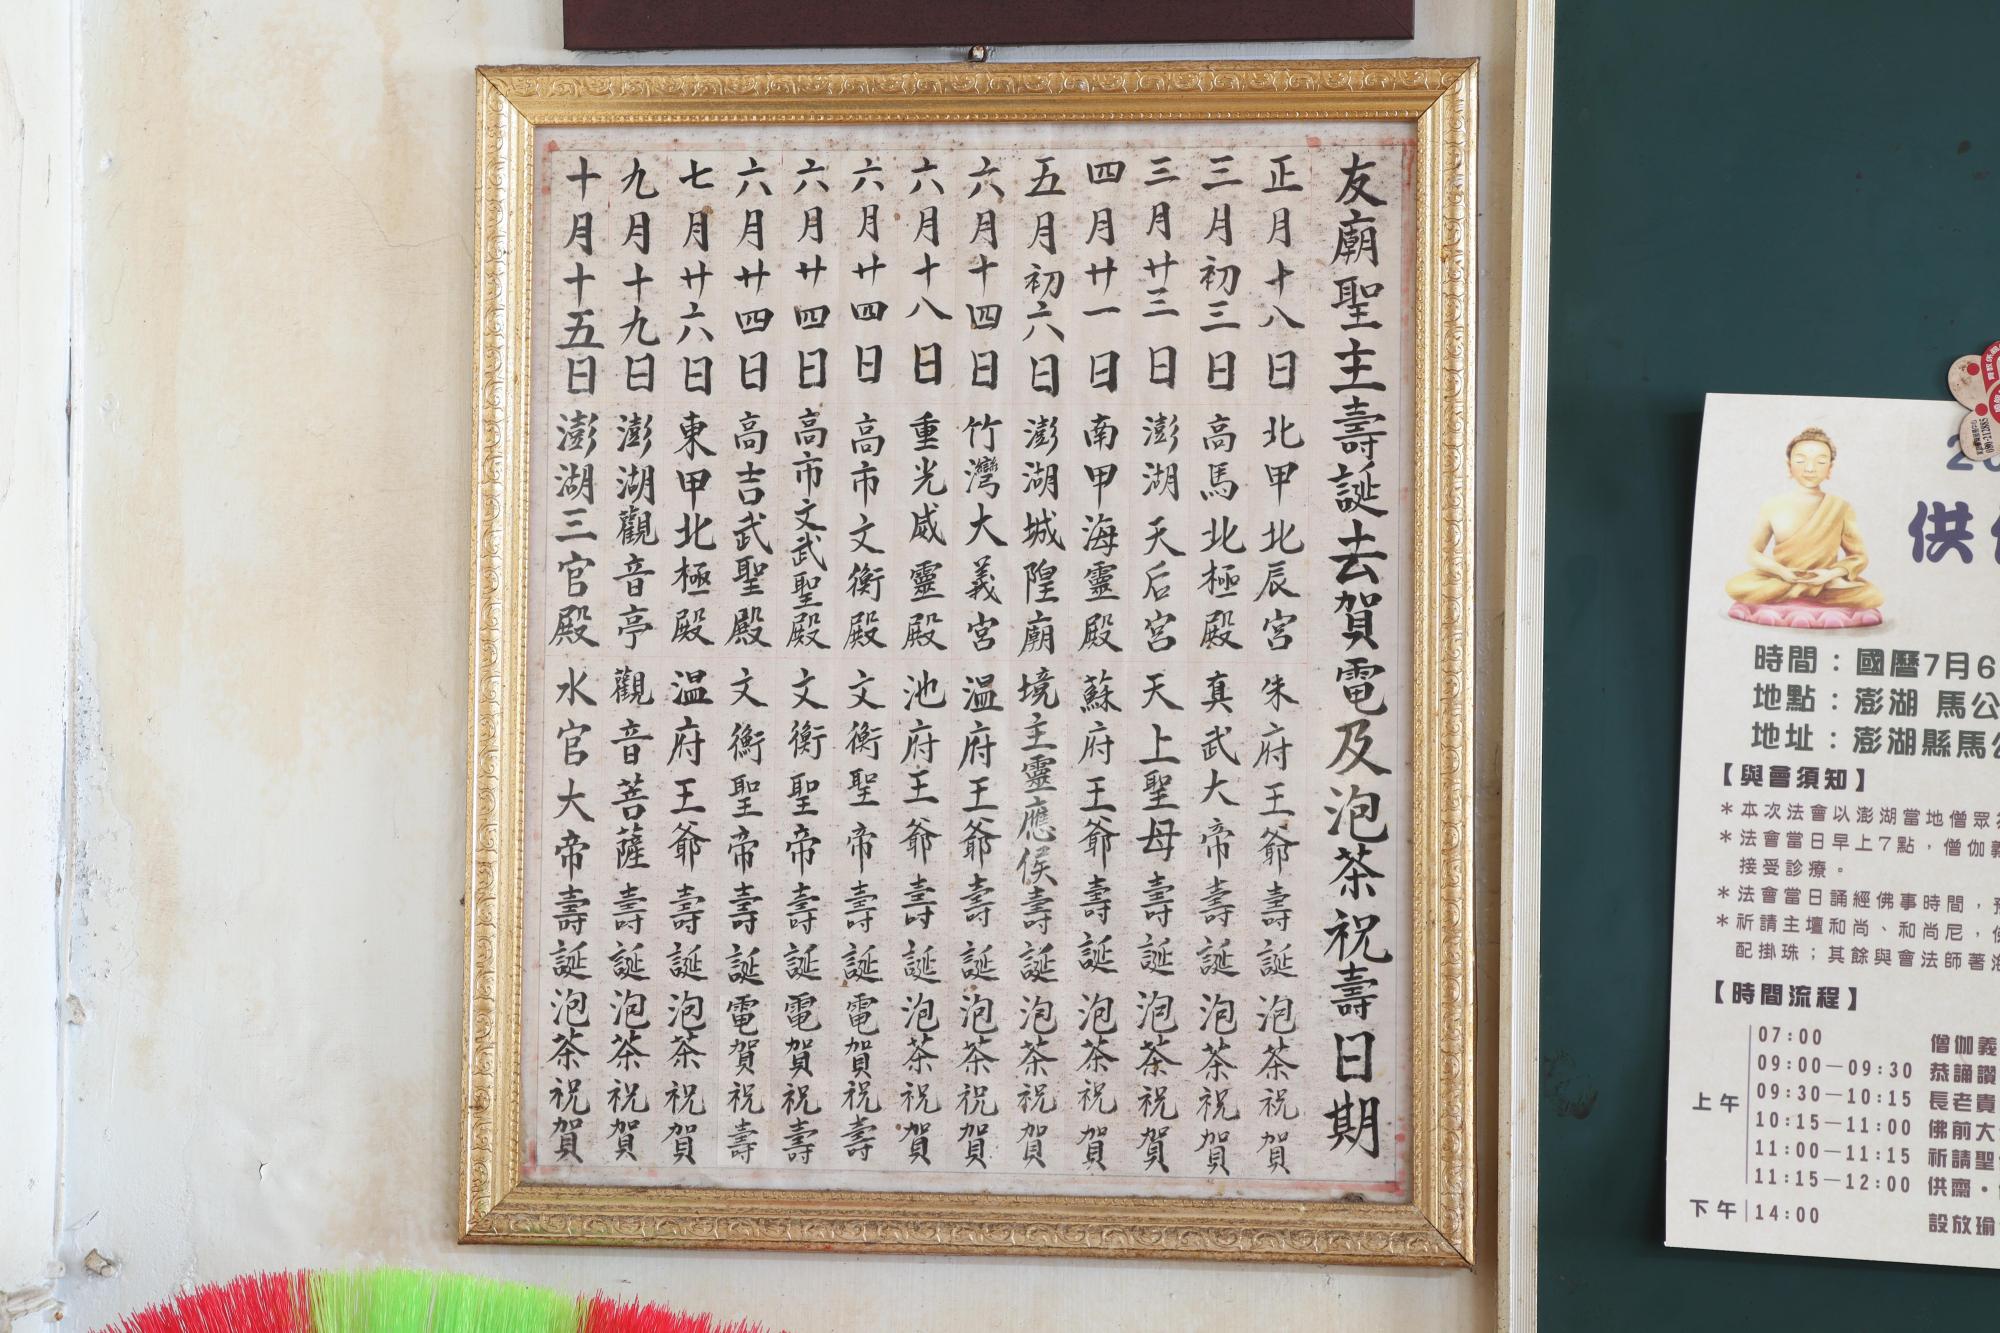 友廟聖主壽誕去賀電及泡茶祝壽日期
正月十八日北甲北辰宮朱府王爺壽誕泡茶祝賀
三月初三日高馬北極殿真武大帝壽誕泡茶祝賀
三月廿三日澎湖天后宮天上聖母壽誕泡茶祝賀
四月廿一日南甲海靈殿蘇府王爺壽誕泡茶祝賀
五月初六日澎湖城隍廟境主靈應侯壽誕泡茶祝賀
六月十四日竹灣大義宮溫府王爺壽誕泡茶祝賀
六月十八日重光威靈殿池府王爺壽誕泡茶祝賀
六月廿四日高市文衡殿文衡聖帝壽誕電賀祝壽
六月廿四日高市文武聖殿文衡聖帝壽誕電賀祝壽
六月廿四日高吉武聖殿文衡聖帝壽誕電賀祝壽
七月廿六日東甲北極殿溫府王爺壽誕泡茶祝賀
九月十九日澎湖觀音亭觀音菩薩壽誕泡茶祝賀
十月十五日澎湖三官殿水官大帝壽誕泡茶祝賀
供
時間：國曆7月6
地點：澎湖 馬公
地址：澎湖縣馬公
【與會須知】
＊本次法會以澎湖當地僧眾
＊法會當日早上7點，僧伽義
接受診療。
＊法會當日誦經佛事時間，
＊祈請主壇和尚、和尚尼，
配掛珠；其餘與會法師著
【時間流程】
上午
07:00 僧伽義
09:00—09:30 恭誦讚
09:30—10:15 長老貴
10:15—11:00 佛前大
11:00—11:15 祈請聖
11:15—12:00 供齋・
下午 14:00 設放瑜